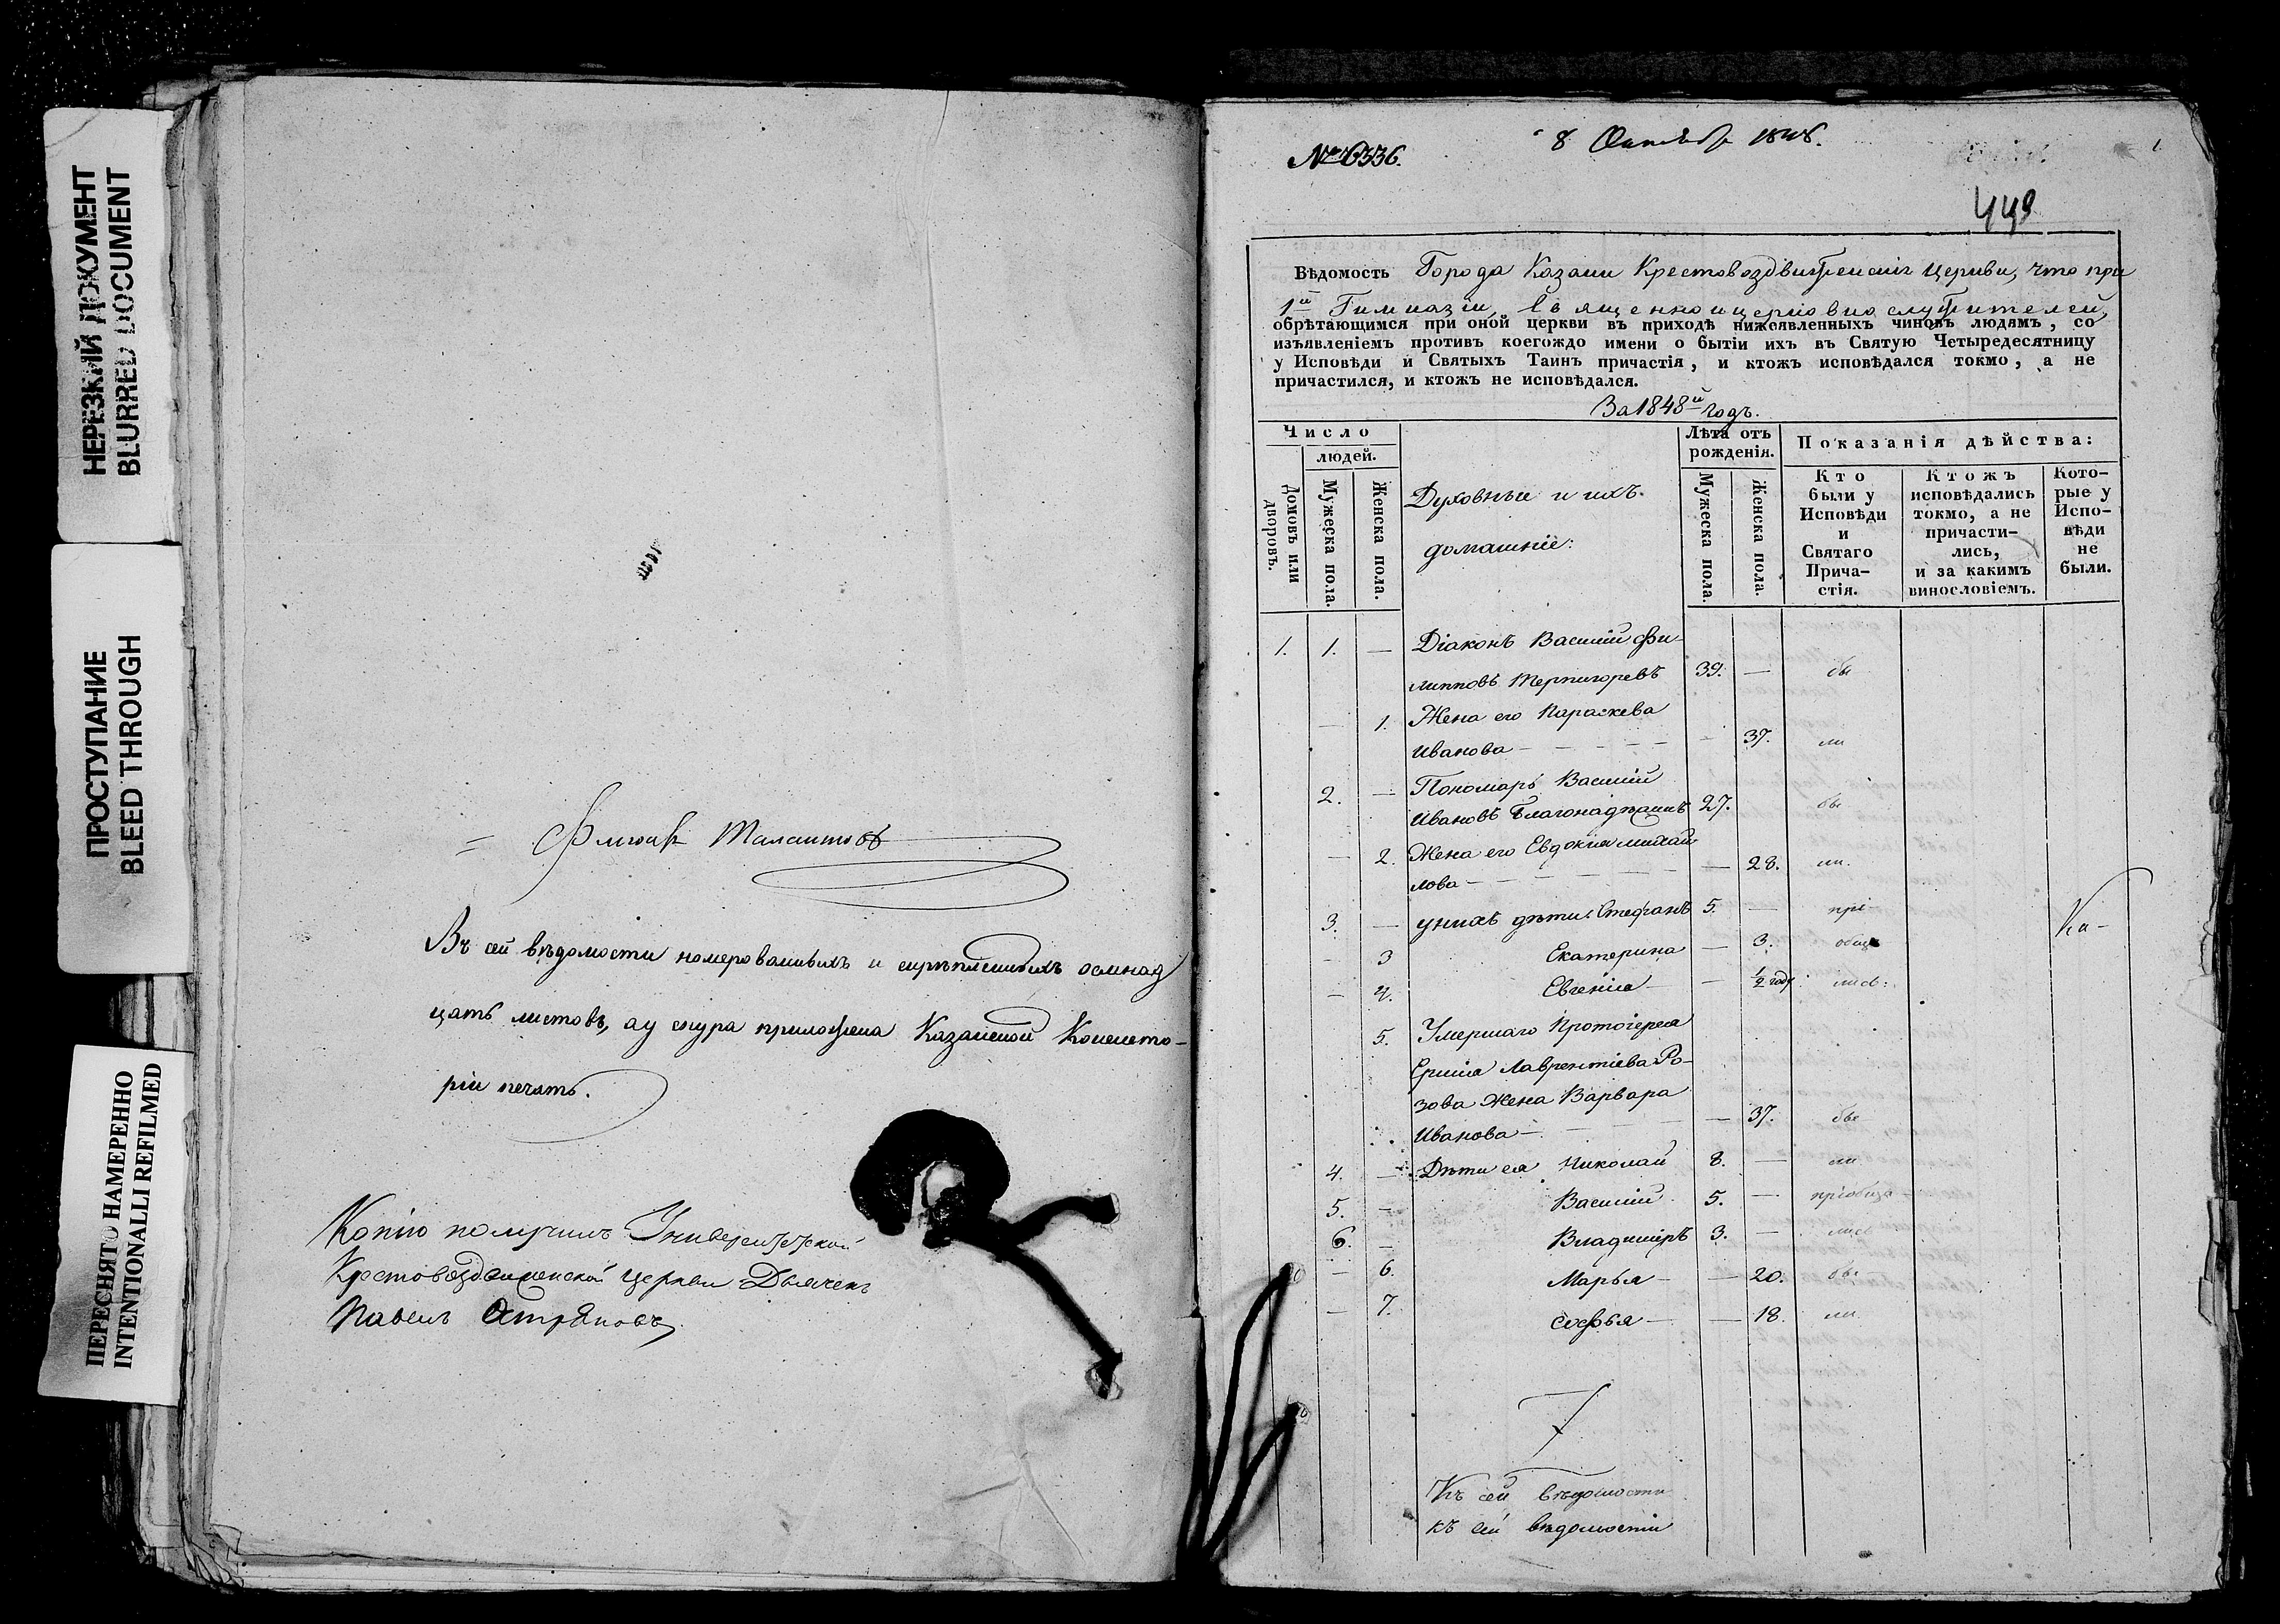 НЕРЕЗКИЙ ДОКУМЕНТ
BLURRED DOCUMENT
ПРОСТУПАНИЕ
BLEED THROUGH
ПЕРЕСНЯТО НАМЕРЕННО
INTENTIONALLI REFILMED
Талантовъ
Въ сей вѣдомости номерованныхъ и скрѣпленныхъ осмнад
цать листовъ, а у снура приложена Казанской Консисто-
ріи печать.
Копію получилъ Университетской
Крестовоздвиженской церкви Дьячекъ
Павелъ
№ 6336.
8 Октябр 1848.
449
Вѣдомость Города Казани Крестовоздвиженскія Церкви, что при
1й Гимназіи, Священно и церковно служителей,
обрѣтающимся при оной церкви въ приходѣ нижеявленныхъ чиновъ людямъ, со
изъявленіемъ противъ коегождо имени о бытіи ихъ въ Святую Четыредесятницу
у Исповѣди и Святыхъ Таинъ причастія, и ктожъ исповѣдался токмо, а не
причастился, и ктожъ не исповѣдался.
За 1848й годъ.
Число
людей.
Домовъ или дворовъ.
Мужеска пола.
Женска пола.
Духовные и ихъ
домашніе:
Лѣта отъ рожденія.
Мужеска пола.
Женска пола.
Показанія дѣйства:
Кто были у Исповѣди и Святаго Прича-стія.
Ктожъ исповѣдались токмо, а не причасти-лись, и за какимъ винословіемъ.
Кото-рые у Испо-вѣди не были.
1. 1. — Діаконъ Василій Фи-
липповъ Терпигоревъ 39. — бы
— 1. Жена его Параскева
Иванова — — 37. ли
2. — Пономарь Василій
Ивановъ 27. бы
— 2. Жена его Евдокія Михай
лова — — 28. ли.
3. — у нихъ дѣти: Стефанъ 5. — прі-
— 3 Екатерина — 3. общи
— 4. Евгенія — — 1/2 год. лись:
Ка-
5. Умершаго Протоіерея
Лаврентіева Ро-
зова Жена Варвара
Иванова — — 37. бы
4. — Дѣти ея Николай 8. — ли
5. — Василій 5. — пріобщи
6. — Владиміръ 3. — лись
— 6. Марья — — 20. бы
— 7. Софья — — 18. ли
Къ сей вѣдомости
къ сей вѣдомости